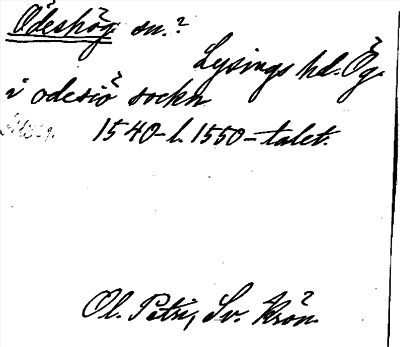 Ödeshög sn.?
Lysings hd. Ög.
i odesiö sockn
1540- l. 1550-talet.
Ol. Petri, Sv. Krön.